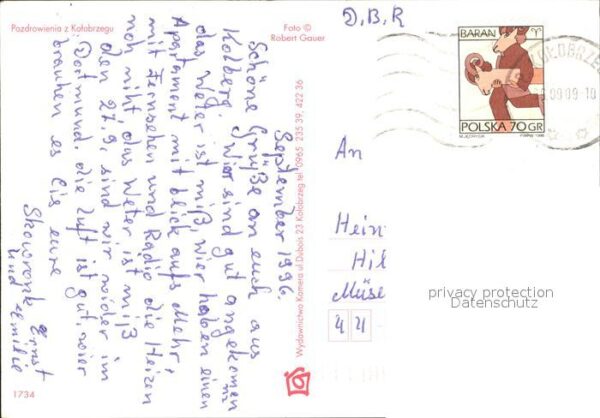 Pozdrowienia z Kołobrzegu
Foto ©
Robert Gauer
September 1996.
Schöne Grüße an euch aus
Kolberg. Wier sind gut angekomen
das Weter ist miß wier haben einen
Apartament mit blick aufs Mehr,
mit Fernsehen und Radio die Heizen
noh miht das Weter ist miß
den 27.9, sind wir wider im
Dortmund. die luft ist gut, wier
brauhen es bis eure
Skowronek Ernst
und Emilie
Wydawnictwo Kamera ul Dubois 23 Kołobrzeg tel 0965 235 39, 422 36
1734
D,B,R
BARAN
POLSKA 70 GR
KOŁOBRZE
09 09 - 10
An
Hein
Hil
Müse
44
privacy protection
Datenschutz